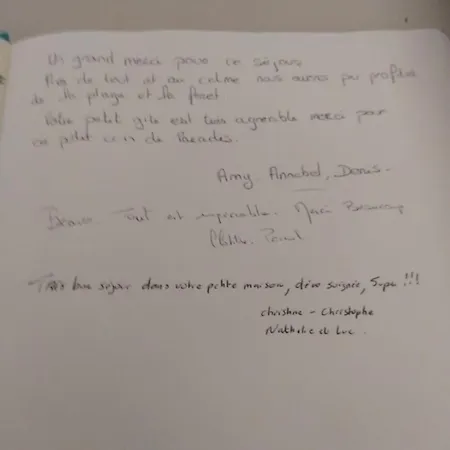 Un grand merci pour ce séjour
Près de tout et au calme nous avons pu profiter
de la plage et la foret
Votre petit gite est très agréable merci pour
ce petit coin de Paradis.
Amy. Annabel, Denis.
Bravo. Tout est impeccable. Merci Beaucoup
Très bon séjour dans votre petite maison, déco soignée, Super !!!
Christine - Christophe
Nathalie et Luc.